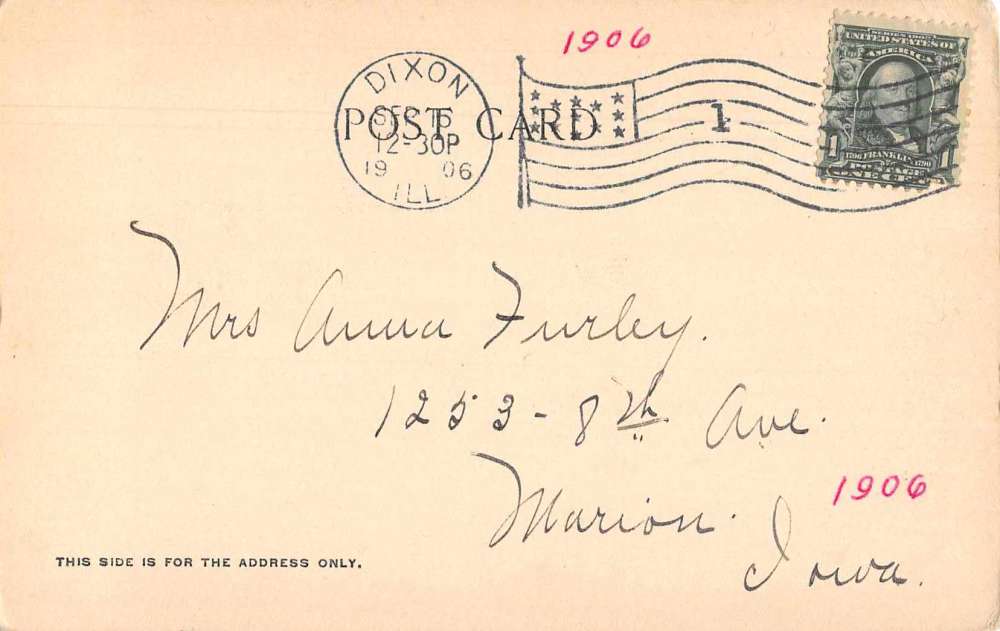 1906
SERIES 1902
UNITED STATES OF
AMERICA
DIXON
SEP 15
POST CARD
12-30P
1
19 06
ILL
1 1
FRANKLIN
POSTAGE
ONE CENT
Mrs Anna Furley.
1253 - 8th Ave.
1906
Marion.
Iowa.
THIS SIDE IS FOR THE ADDRESS ONLY.